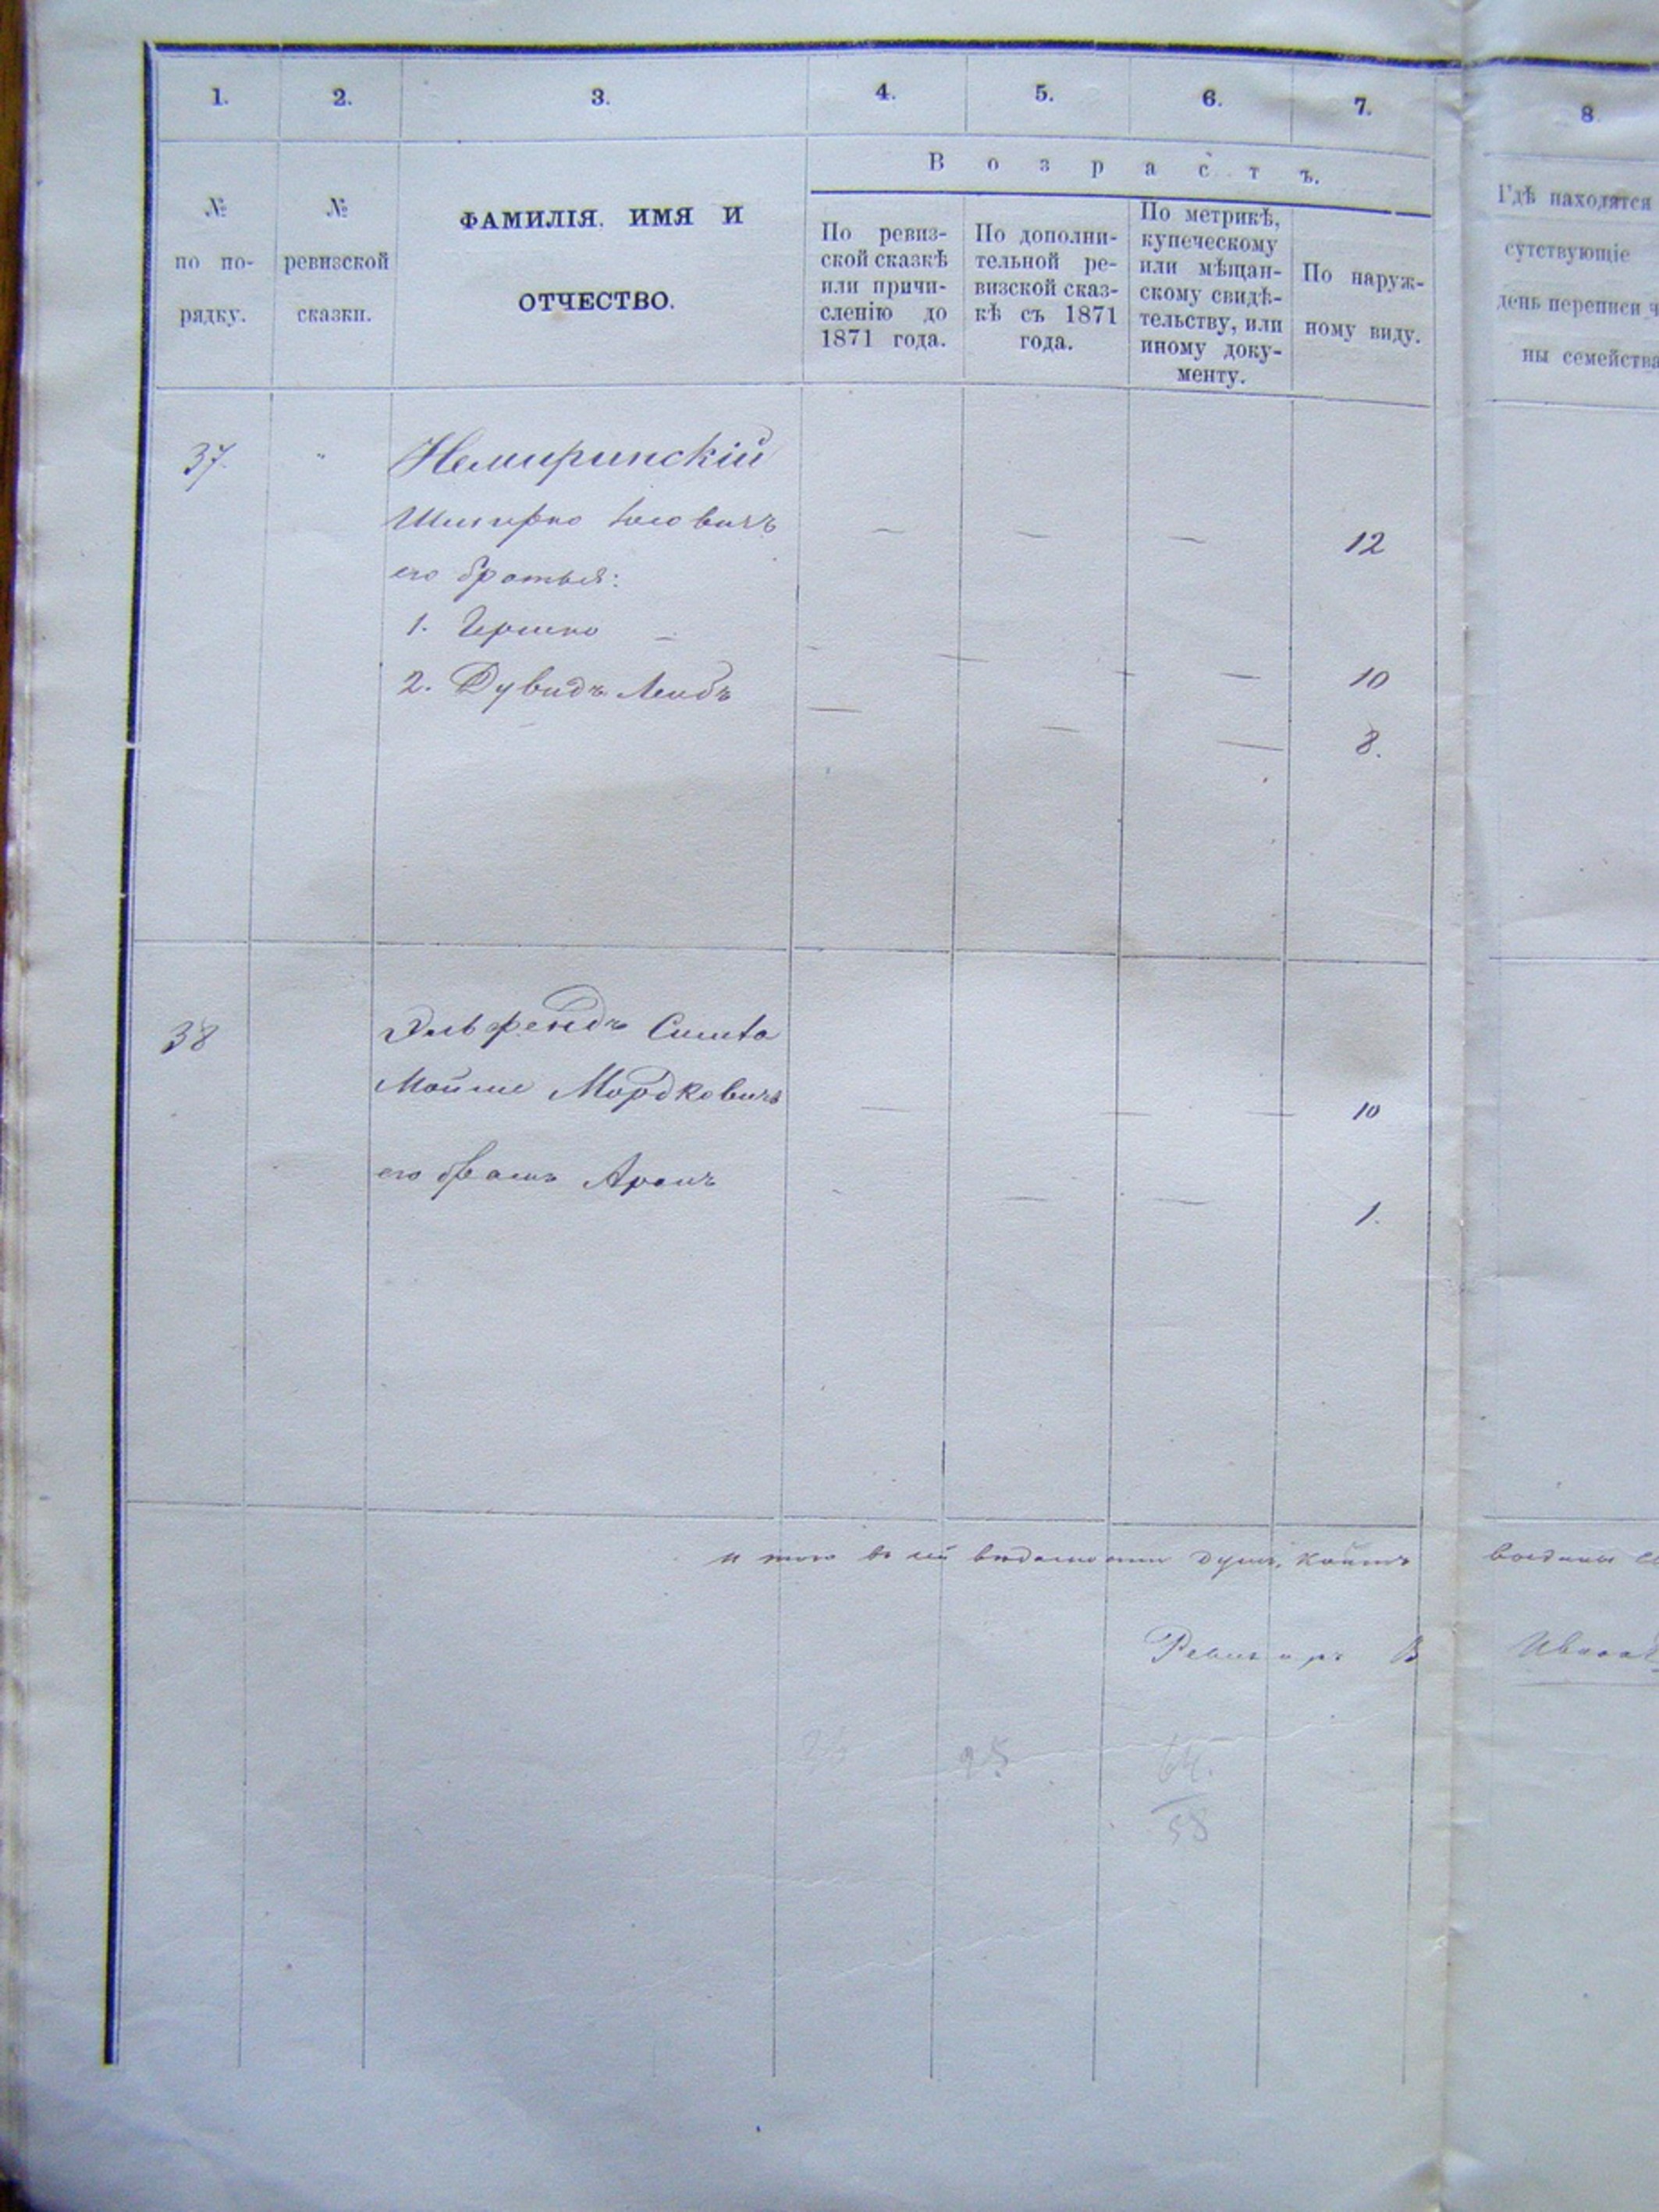 1.
2.
3.
4.
5.
6.
7.
8.
В о з р а с т ъ.
№
по по-
рядку.
№
ревизской
сказки.
ФАМИЛІЯ, ИМЯ И
ОТЧЕСТВО.
По ревиз-
ской сказкѣ
или причи-
сленію до
1871 года.
По дополни-
тельной ре-
визской сказ-
кѣ съ 1871
года.
По метрикѣ,
купеческому
или мѣщан-
скому свидѣ-
тельству, или
иному доку-
менту.
По наруж-
ному виду.
Гдѣ находятся
сутствующіе
день переписи ч
ны семейства
37. " Немиринскій
Іосовичъ — — — 12
его братья:
1. Гершко — — — — 10
2. Дувидъ Лейбъ — — — 8.
38 Симха
Мойше Мордковичъ — — — 10
его братъ Аронъ — — — 1.
итого въ сей вѣдомости душъ
Ревизоръ В
95
64.
58